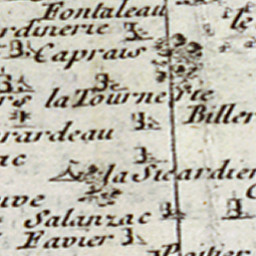 Fontaleau
le
rdinerie
Caprais
la Tourneste
Biller
rardeau
ac
la Sicardier
uve
Salanzac
Favier